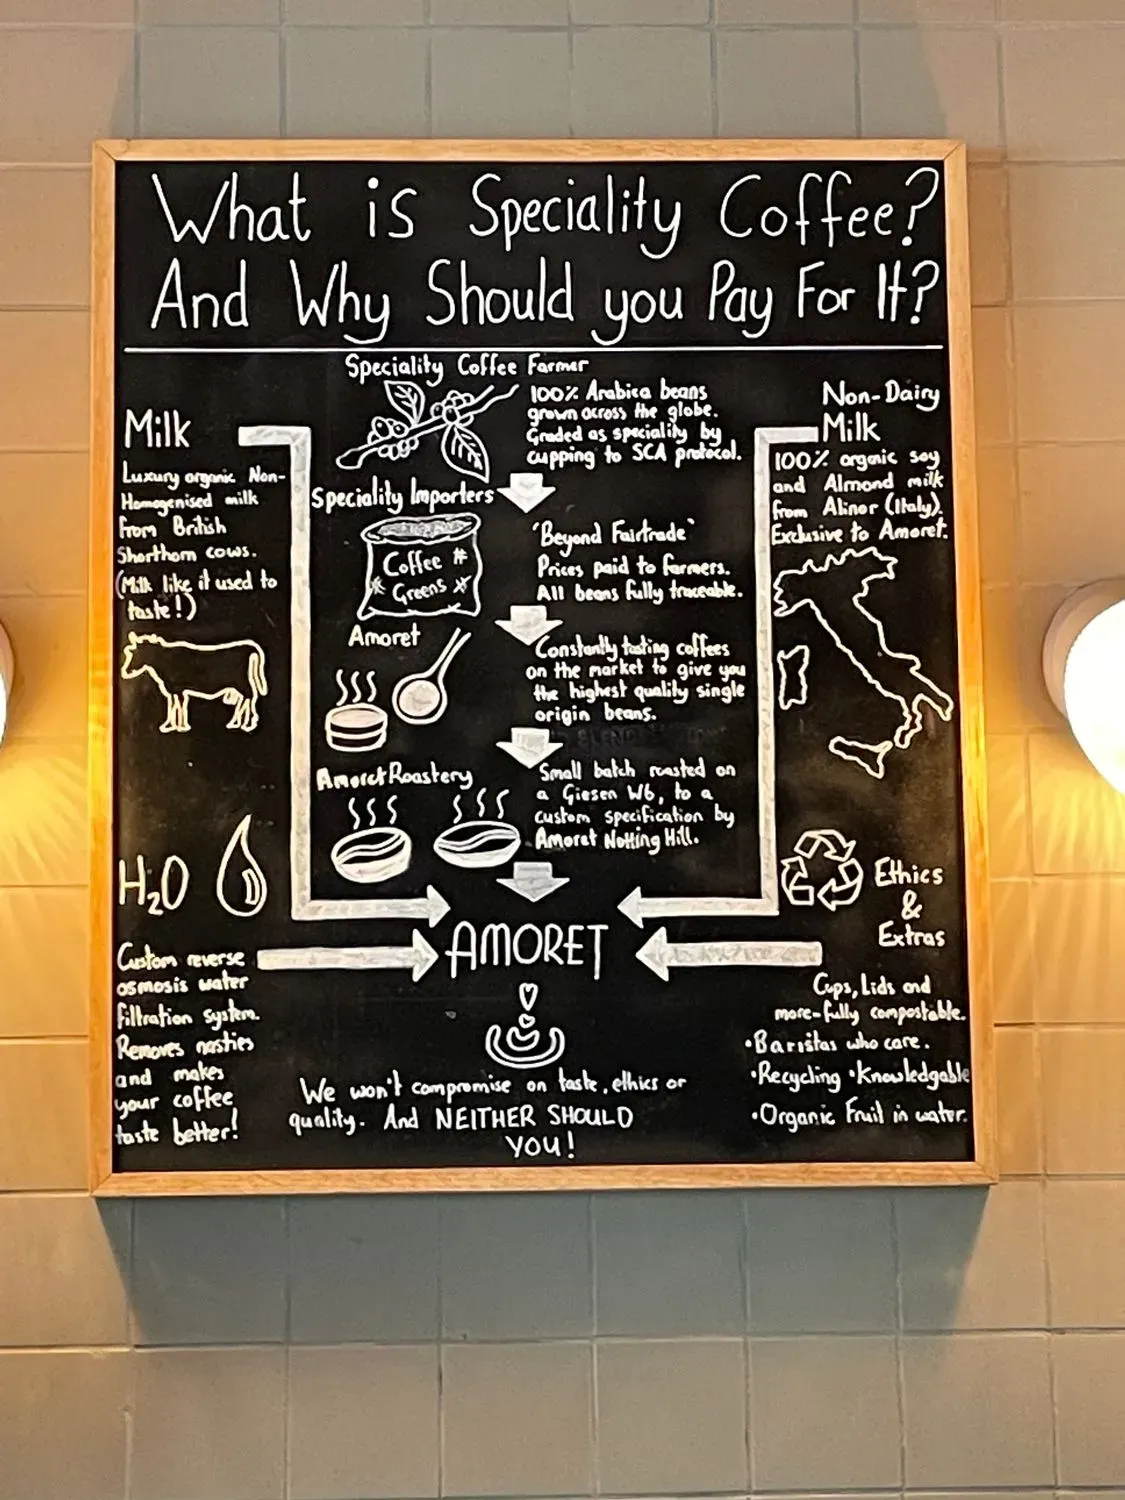 What is Speciality Coffee?
And Why Should you Pay For It?
Speciality Coffee Farmer
100% Arabica beans
grown across the globe.
Graded as speciality by
cupping to SCA protocol.
Speciality Importers
Coffee #
* Greens *
'Beyond Fairtrade'
Prices paid to farmers.
All beans fully traceable.
Amoret
Constantly tasting coffees
on the market to give you
the highest quality single
origin beans.
Amoret Roastery
Small batch roasted on
a Giesen W6, to a
custom specification by
Amoret Notting Hill.
Milk
Luxury organic Non-
Homogenised milk
from British
Shorthorn cows.
(Milk like it used to
taste!)
H2O
Custom reverse
osmosis water
filtration system.
Removes nasties
and makes
your coffee
taste better!
Non-Dairy
Milk
100% organic soy
and Almond milk
from Alinor (Italy).
Exclusive to Amoret.
Ethics
&
Extras
Cups, Lids and
more-fully compostable.
•Baristas who care.
•Recycling •Knowledgable
•Organic Fruit in water.
AMORET
We won't compromise on taste, ethics or
quality. And NEITHER SHOULD
YOU!